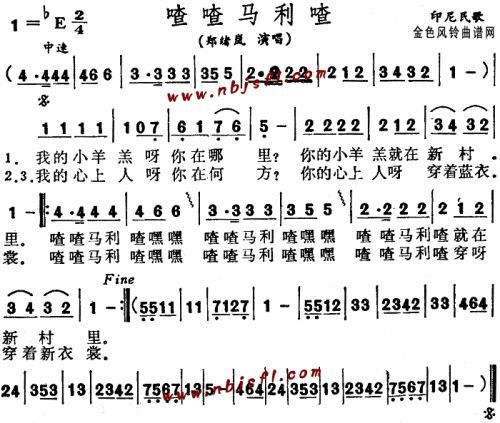 喳喳马利喳
1=♭E 2/4
印尼民歌
中速
(郑绪岚 演唱)
金色风铃曲谱网
(4·444 | 466 | 3·333 | 355 | 2·222 | 212 | 3432 | 1 - )
www.nbjsfl.com
1111 | 107 | 6176 | 5 - | 2222 | 212 | 3432 |
1. 我的小羊 羔 呀 你在哪 里? 你的小羊 羔就在 新 村 .
2.3.我的心上 人 呀 你在何 方? 你的心上 人呀 穿着蓝衣.
1 - |: 4·444 | 466 | 3·333 | 355 | 2·222 | 212 |
里. 喳喳马利 喳嘿嘿 喳喳马利 喳嘿嘿 喳 喳马利喳就在
裳. 喳喳马利 喳嘿嘿 喳喳马利 喳嘿嘿 喳 喳马利喳穿呀
Fine
3432 | 1 - :| (5511 | 11 | 7127 | 1 - | 5512 | 33 | 2342 | 33 | 464 |
新 村 里.
穿着新衣 裳.
www.nbjsfl.com
24 | 353 | 13 | 2342 | 7567 | 13 | 5 - | 464 | 24 | 353 | 13 | 2342 | 7567 | 13 | 1 - )